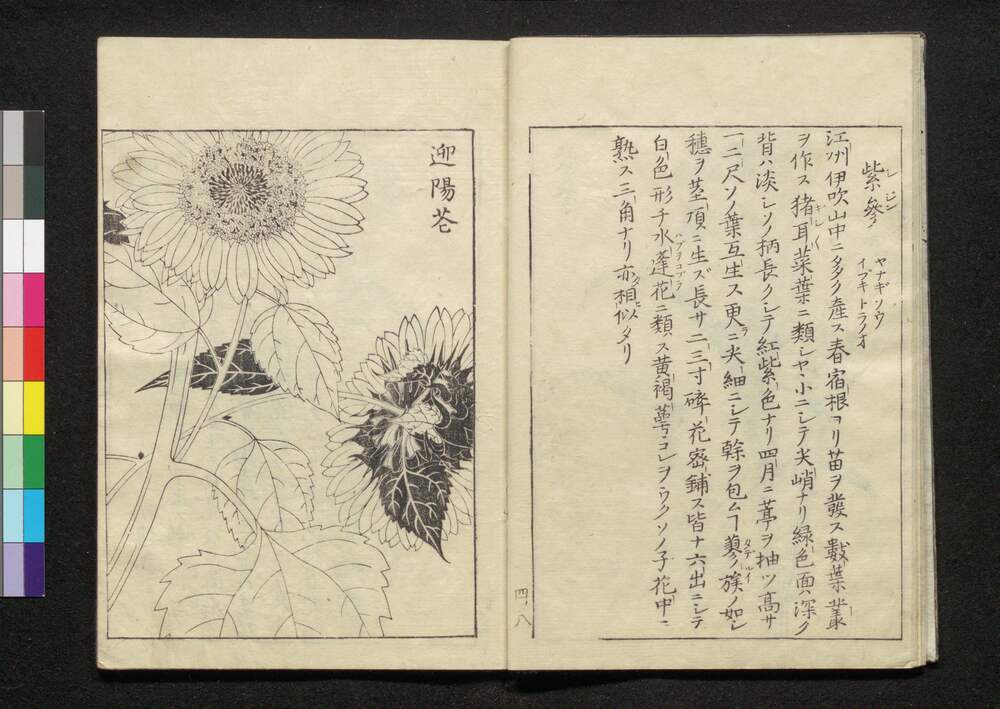 紫參 シジン
ヤナギソウ
イブキトラノオ
江州伊吹山中ニ多ク産ス春宿根ヨリ苗ヲ發ス數葉叢
ヲ作ス猪耳菜葉ニ類シヤヽ小ニシテ尖峭ナリ緑色面ハ深ク
背ハ淡シソノ柄長クシテ紅紫色ナリ四月ニ葶ヲ抽ツ高サ
一二尺ソノ葉互生ス更ニ尖細ニシテ幹ヲ包ム丅蓼ノ族ノ如シ
穗ヲ莖頂ニ生ズ長サ二三寸碎花密鋪ス皆ナ六出ニシテ
白色形チ水蓬花ニ類ス黄褐萼コレヲウクソノ子花中ニ
熟ス三角ナリ亦相似タリ
四ノ八
迎陽花